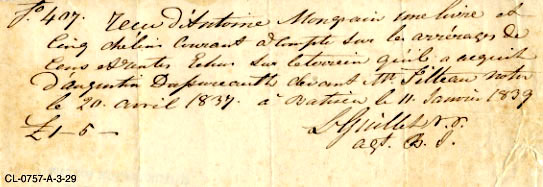 fo. 407. Recu d'Antoine Mongrain une livre et
Cinq chelins courant acompte sur les arrérages de
Cens et rentes Echus sur le terrain qu'il a acquit
d'augustin devant Mtre Filteau notre
le 20. avril 1837. à Batiscan le 11. Janvier 1839
£1-5-
L Guillet N.P.
agt. B. S.
CL-0757-A-3-29